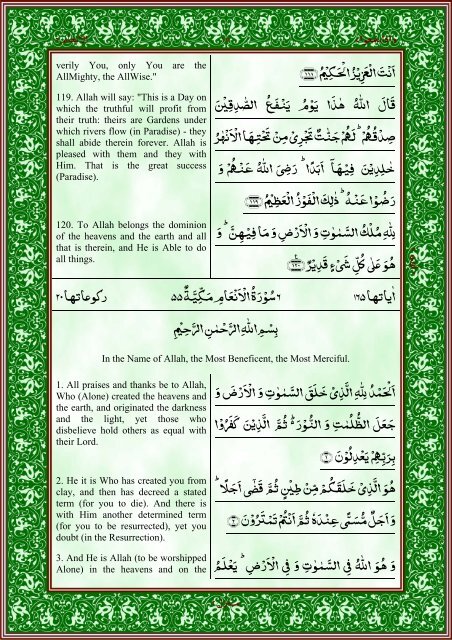 verily You, only You are the
AllMighty, the AllWise."
اَنْتَ الْعَزِیْزُ الْحَكِیْمُ ﴿۱۱۸﴾
119. Allah will say: "This is a Day on
which the truthful will profit from
their truth: theirs are Gardens under
which rivers flow (in Paradise) - they
shall abide therein forever. Allah is
pleased with them and they with
Him. That is the great success
(Paradise).
قَالَ اللّٰهُ هٰذَا یَوْمُ یَنْفَعُ الصّٰدِقِیْنَ
صِدْقُهُمْ ؕ لَهُمْ جَنّٰتٌ تَجْرِیْ مِنْ تَحْتِهَا الْاَنْهٰرُ
خٰلِدِیْنَ فِیْهَاۤ اَبَدًا ؕ رَضِیَ اللّٰهُ عَنْهُمْ وَ
رَضُوْا عَنْهُ ؕ ذٰلِكَ الْفَوْزُ الْعَظِیْمُ ﴿۱۱۹﴾
120. To Allah belongs the dominion
of the heavens and the earth and all
that is therein, and He is Able to do
all things.
لِلّٰهِ مُلْكُ السَّمٰوٰتِ وَ الْاَرْضِ وَ مَا فِیْهِنَّ ؕ وَ
هُوَ عَلٰى كُلِّ شَیْءٍ قَدِیْرٌ ﴿۱۲۰﴾
اٰیاتها ۱۶۵ ۶ سُوْرَةُ الْاَنْعَامِ مَكِّیَّةٌ ۵۵ ركوعاتها ۲۰
بِسْمِ اللّٰهِ الرَّحْمٰنِ الرَّحِیْمِ
In the Name of Allah, the Most Beneficent, the Most Merciful.
1. All praises and thanks be to Allah,
Who (Alone) created the heavens and
the earth, and originated the darkness
and the light, yet those who
disbelieve hold others as equal with
their Lord.
اَلْحَمْدُ لِلّٰهِ الَّذِیْ خَلَقَ السَّمٰوٰتِ وَ الْاَرْضَ وَ
جَعَلَ الظُّلُمٰتِ وَ النُّوْرَ ؕ ثُمَّ الَّذِیْنَ كَفَرُوْا
بِرَبِّهِمْ یَعْدِلُوْنَ ﴿۱﴾
2. He it is Who has created you from
clay, and then has decreed a stated
term (for you to die). And there is
with Him another determined term
(for you to be resurrected), yet you
doubt (in the Resurrection).
هُوَ الَّذِیْ خَلَقَكُمْ مِّنْ طِیْنٍ ثُمَّ قَضٰۤى اَجَلًا ؕ
وَ اَجَلٌ مُّسَمًّى عِنْدَهٗ ثُمَّ اَنْتُمْ تَمْتَرُوْنَ ﴿۲﴾
3. And He is Allah (to be worshipped
Alone) in the heavens and on the
وَ هُوَ اللّٰهُ فِی السَّمٰوٰتِ وَ فِی الْاَرْضِ ؕ یَعْلَمُ